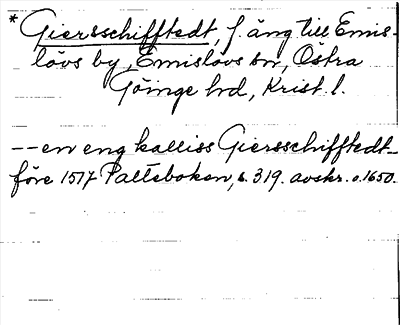 * Giersschifftedt, f. äng till Emis-
lövs by, Emislövs sn, Östra
Göinge hd, Krist. l.
-- en eng kalliss Giersschifftedt_
före 1517 Palteboken, s. 319. avskr. o. 1650.